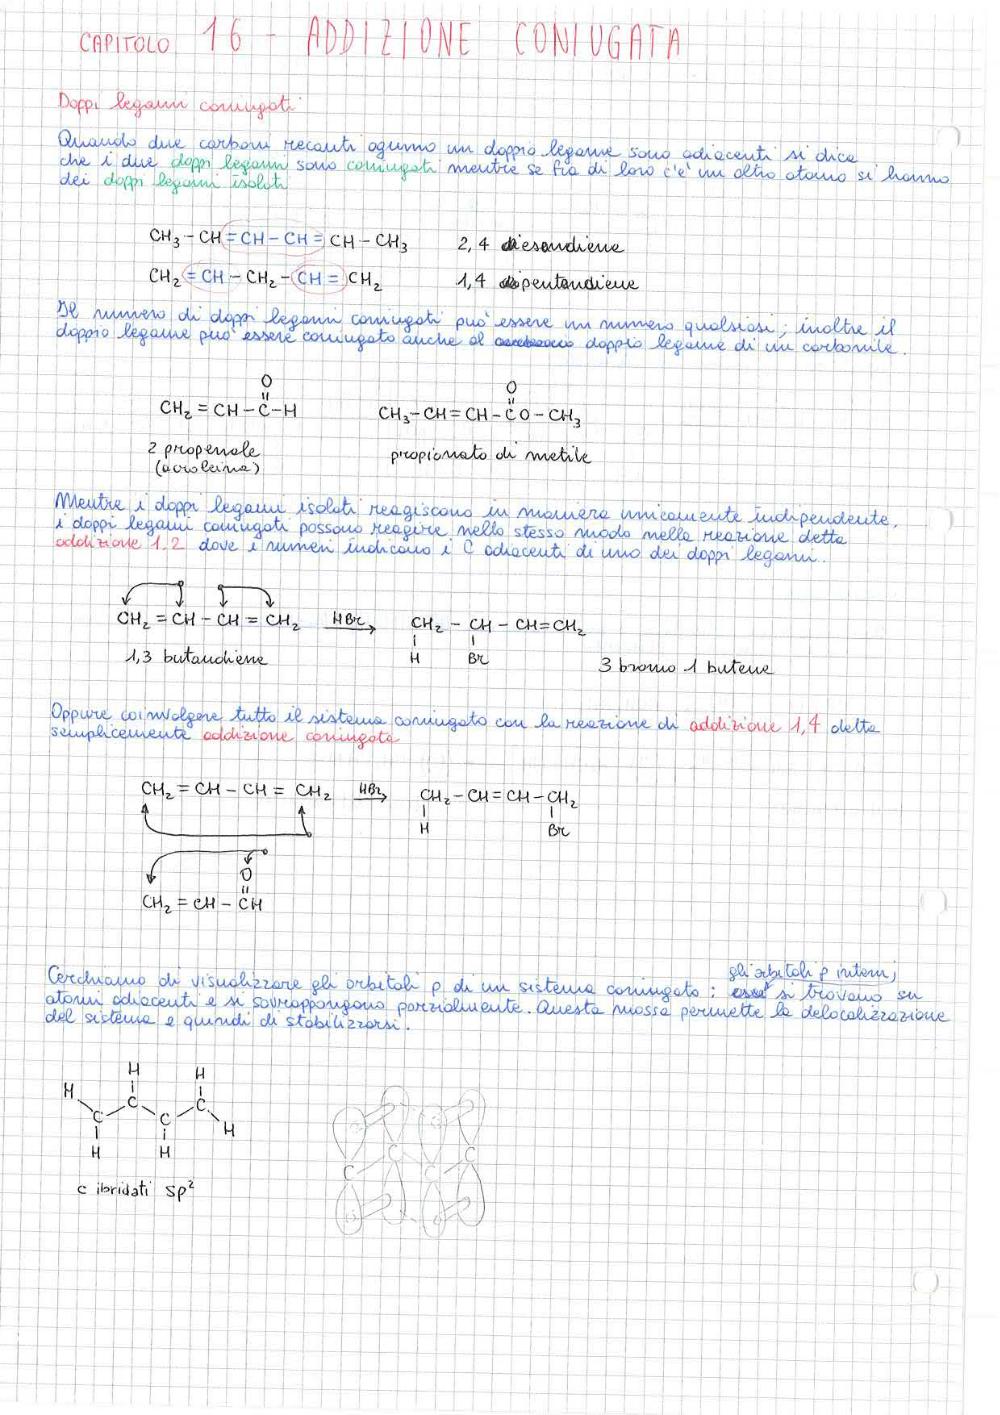 CAPITOLO 16 - ADDIZIONE CONIUGATA
Doppi legami coniugati
Quando due carboni recanti ognuno un doppio legame sono adiacenti si dice
che i due doppi legami sono coniugati mentre se fra di loro c'è un altro atomo si hanno
dei doppi legami isolati
CH3-CH=CH-CH=CH-CH3 2,4 esandiene
CH2=CH-CH2-CH=CH2 1,4 pentandiene
Il numero di doppi legami coniugati può essere un numero qualsiasi; inoltre il
doppio legame può essere coniugato anche al doppio legame di un carbonile.
O
O
CH2=CH-C-H
CH3-CH=CH-CO-CH3
2 propenale
(acroleina)
propionato di metile
Mentre i doppi legami isolati reagiscono in maniera unicamente indipendente,
i doppi legami coniugati possono reagire nello stesso modo nella reazione detta
addizione 1,2 dove i numeri indicano i C adiacenti di uno dei doppi legami.
CH2=CH-CH=CH2 HBr CH2-CH-CH=CH2
H Br
1,3 butandiene
3 bromo 1 butene
Oppure coinvolgere tutto il sistema coniugato con la reazione di addizione 1,4 detta
semplicemente addizione coniugata
CH2=CH-CH=CH2 HBr CH2-CH=CH-CH2
H Br
O
CH2=CH-CH
gli orbitali p interni,
Cerchiamo di visualizzare gli orbitali p di un sistema coniugato: si trovano su
atomi adiacenti e si sovrappongono parzialmente. Questa mossa permette la delocalizzazione
del sistema e quindi di stabilizzarsi.
H H
H C C
C C H
H H
C C
C C
C ibridati sp2